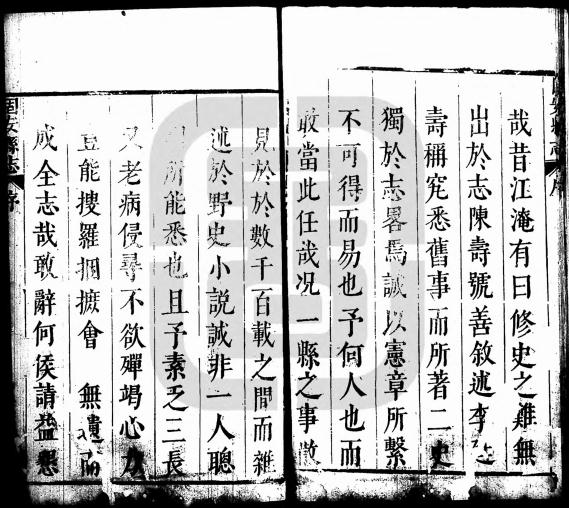 哉昔江淹有曰修史之難無
出於志陳壽號善敘述李延
壽稱究悉舊事而所著二史
獨於志畧焉誠以憲章所繫
不可得而易也予何人也而
敢當此任哉况一縣之事散
見於於數千百載之間而雜
述於野史小說誠非一人聰
明所能悉也且予素乏三長
又老病侵尋不欲殫竭心力
豈能搜羅捃摭會 無遺而
成全志哉敢辭何侯請益懇
固安縣志 序